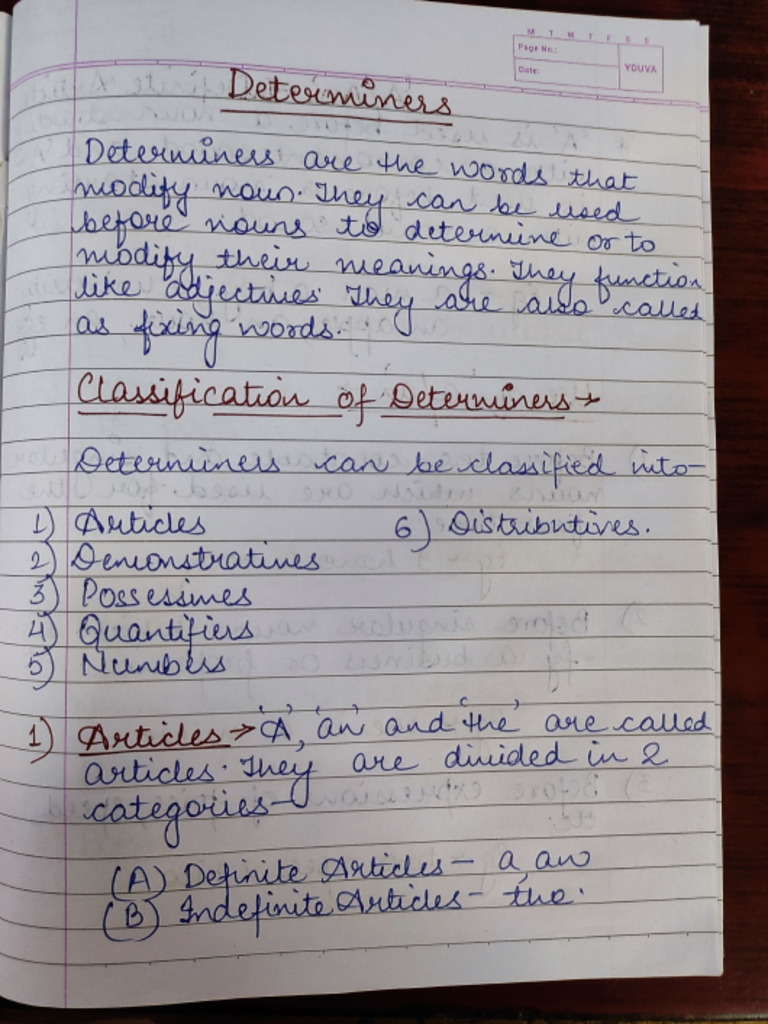 M T W T F S S
Page No.:
Date:
YOUVA
Determiners
Determiners are the words that
modify noun. They can be used
before nouns to determine or to
modify their meanings. They function
like adjectives. They are also called
as fixing words.
Classification of Determiners→
Determiners can be classified into-
1) Articles 6) Distributives.
2) Demonstratives
3) Possessives
4) Quantifiers
5) Numbers
1) Articles → 'A', 'an' and 'the' are called
articles. They are divided in 2
categories-
(A) Definite Articles - a, an
(B) Indefinite Articles - the.